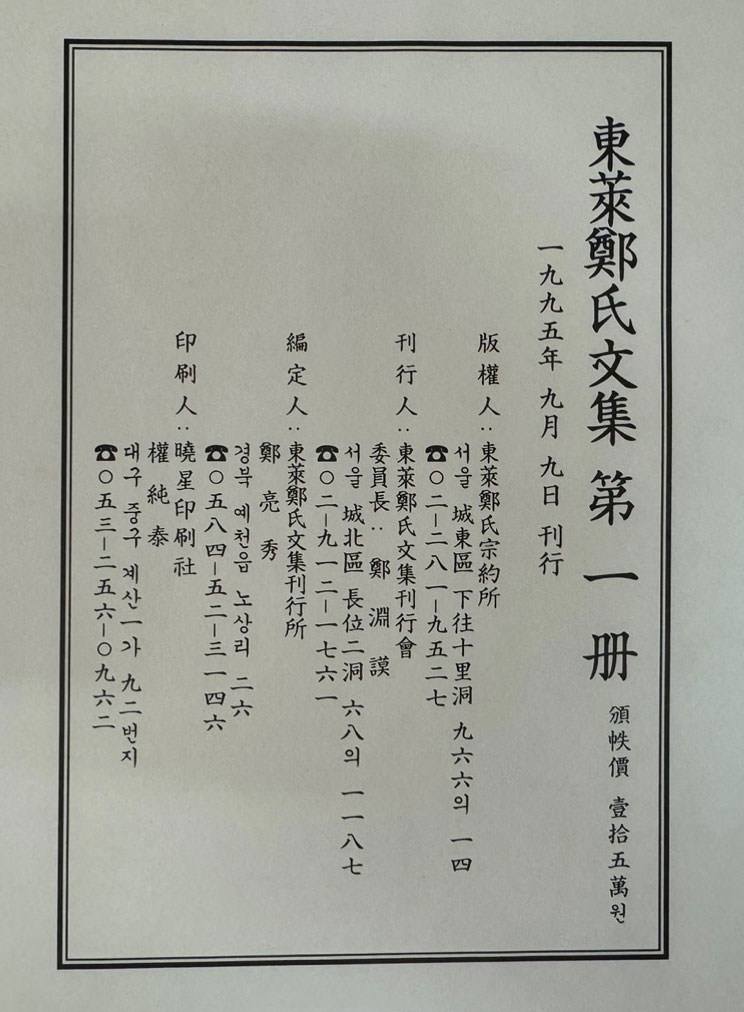 東萊鄭氏文集 第 一 册
頒帙價 壹拾五萬원
一九九五年 九月 九日 刊行
版權人: 東萊鄭氏宗約所
서울 城東區 下往十里洞 九六六의 一四
☎〇二－二八一－九五二七
刊行人: 東萊鄭氏文集刊行會
委員長: 鄭 淵 謨
서울 城北區 長位二洞 六八의 一一八七
☎〇二－九一二－一七六一
編定人: 東萊鄭氏文集刊行所
鄭 亮 秀
경북 예천읍 노상리 二六
☎〇五八四－五二－三一四六
印刷人: 曉星印刷社
權 純 泰
대구 중구 계산一가 九二번지
☎〇五三－二五六－〇九六二